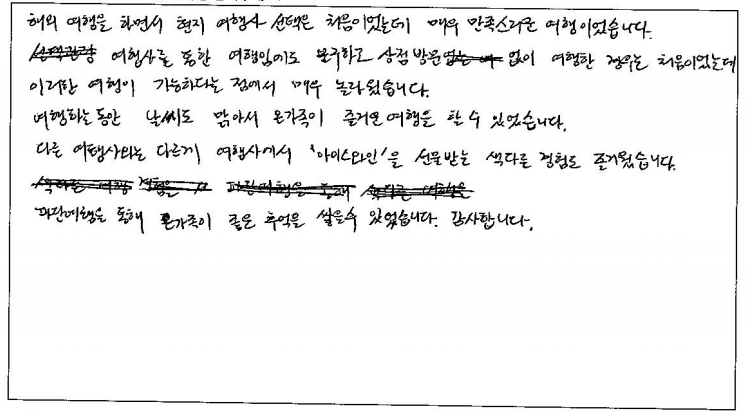 해외 여행을 하면서 현지 여행사 선택은 처음이었는데 매우 만족스러운 여행이었습니다.
여행사를 통한 여행임에도 불구하고 상점방문 없이 여행한 경우는 처음이었는데
이러한 여행이 가능하다는 점에서 매우 놀라웠습니다.
여행하는동안 날씨도 맑아서 온가족이 즐거운 여행을 할 수 있었습니다.
다른 여행사와는 다르게 여행사에서 '아이스와인'을 선물받는 색다른 경험도 즐거웠습니다.
파란여행을 통해 온가족이 좋은 추억을 쌓을수 있었습니다. 감사합니다.